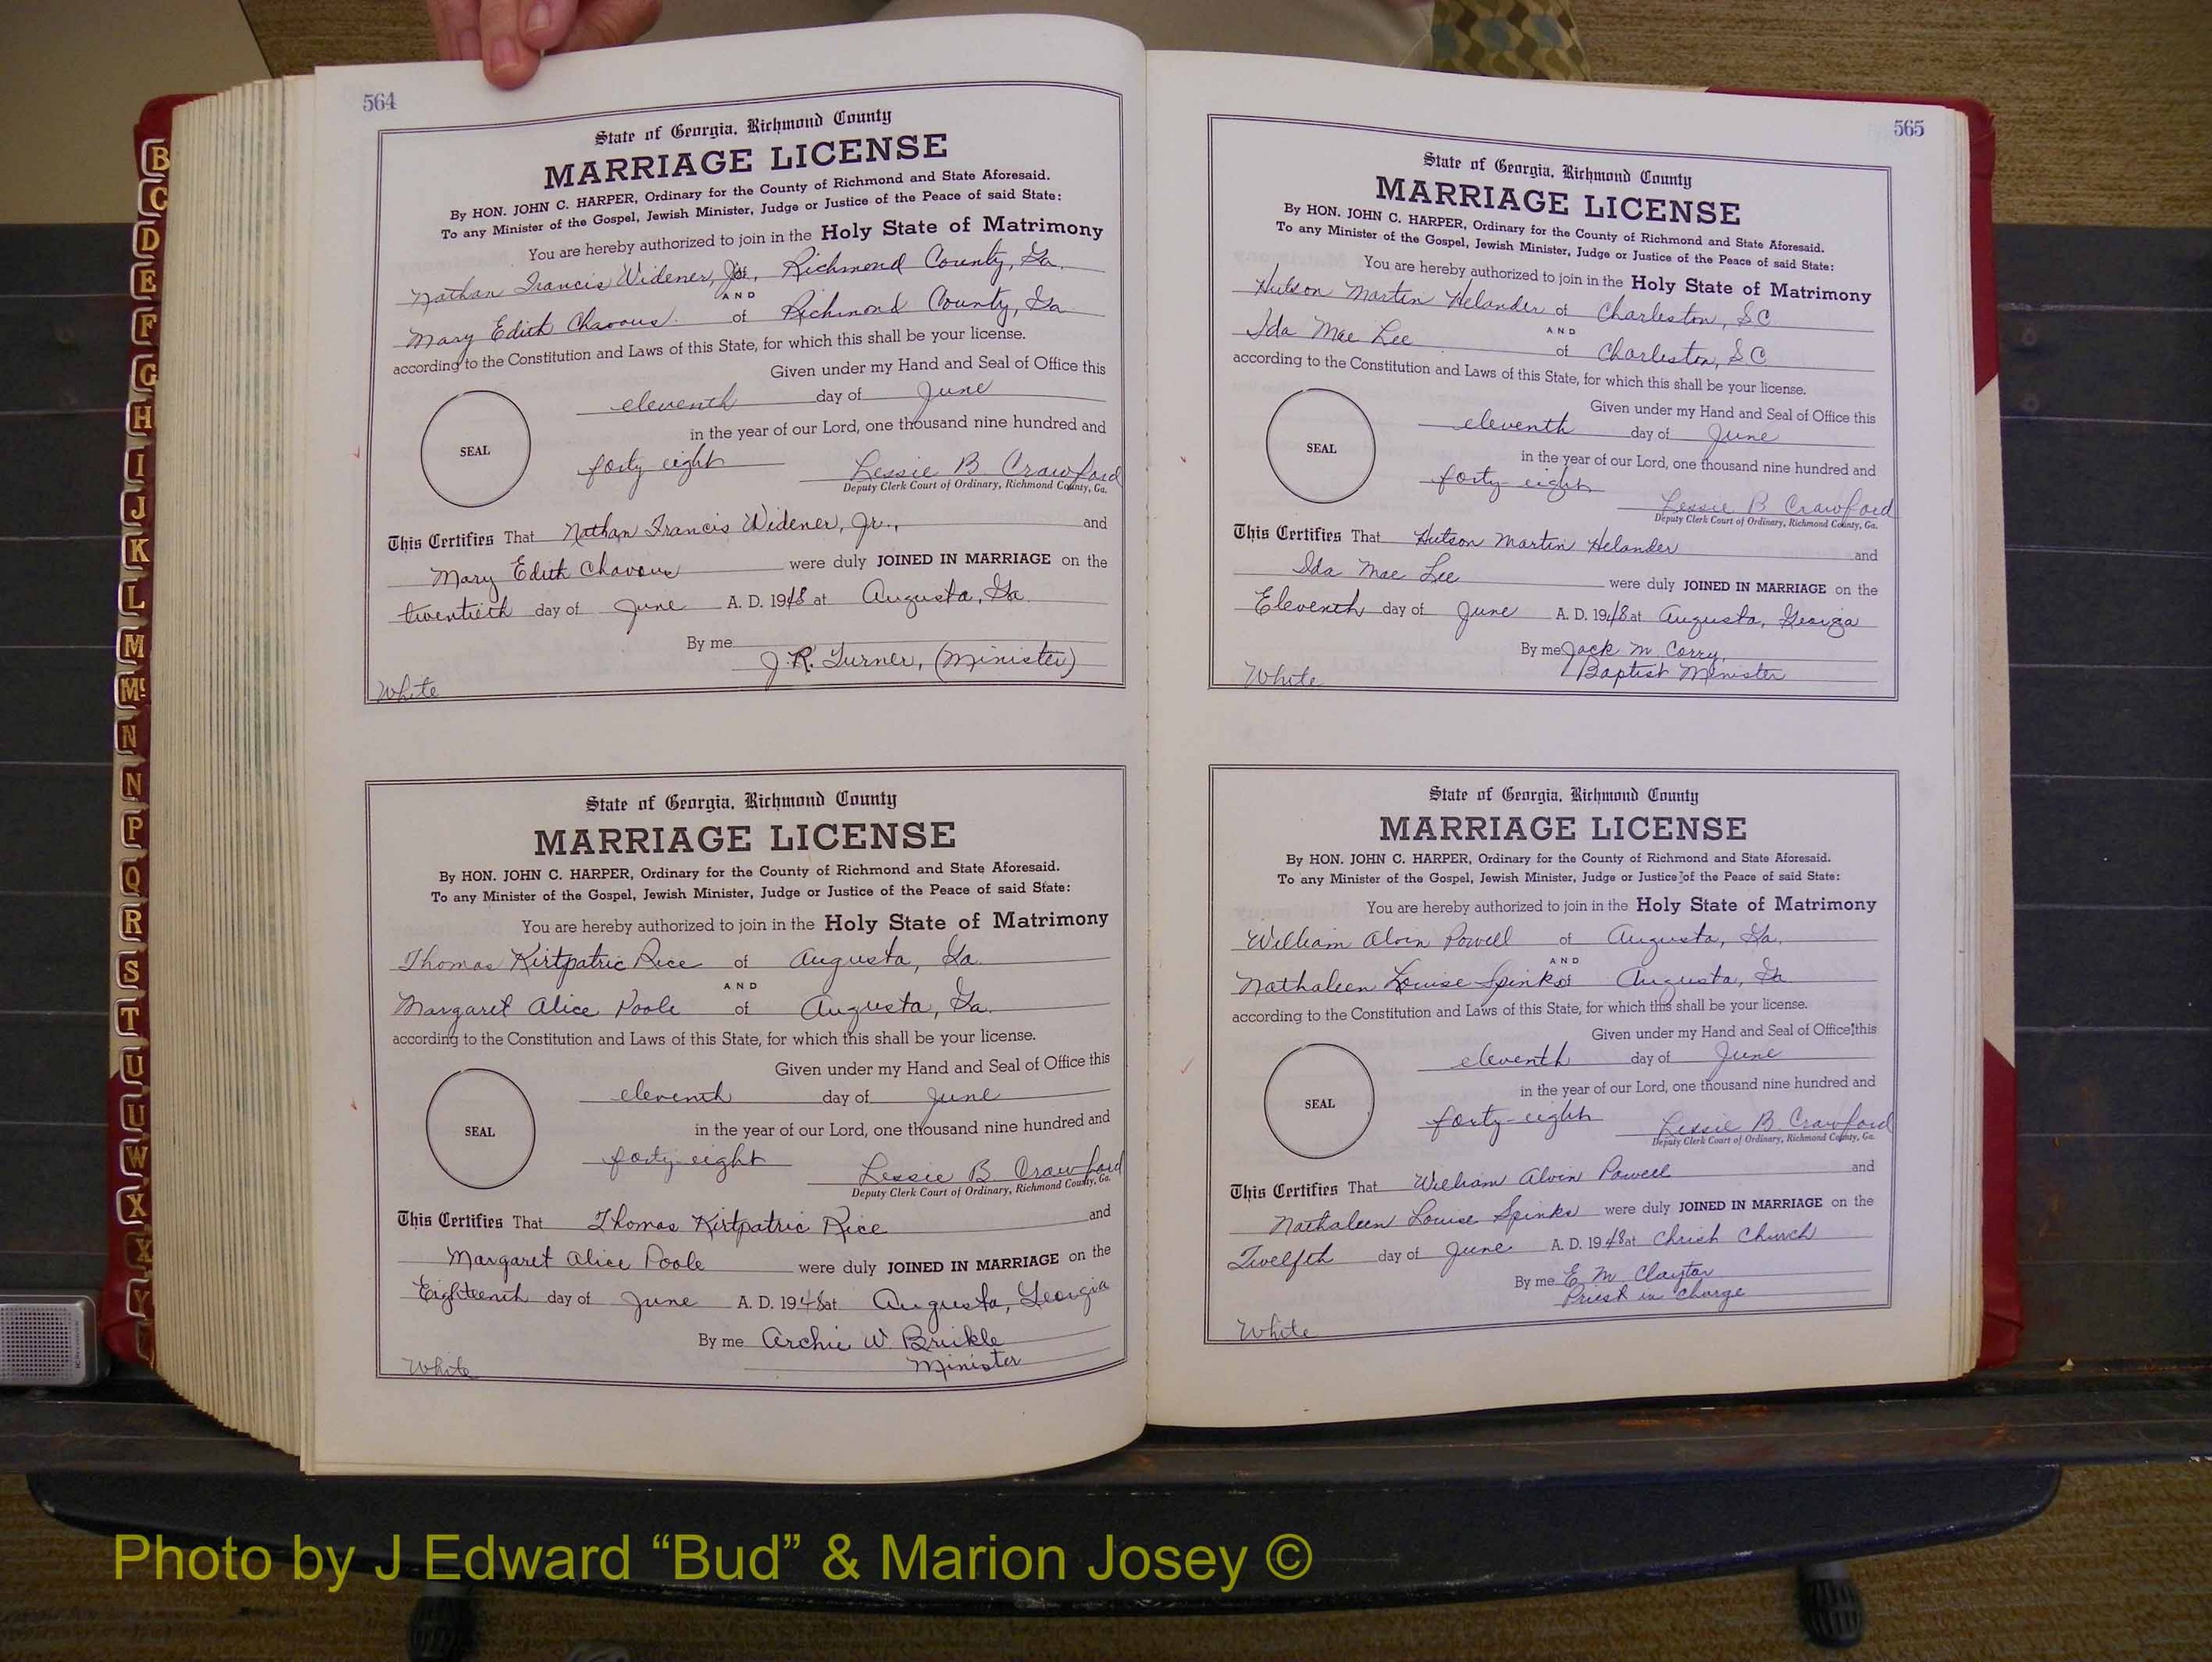 564
State of Georgia, Richmond County
MARRIAGE LICENSE
By HON. JOHN C. HARPER, Ordinary for the County of Richmond and State Aforesaid.
To any Minister of the Gospel, Jewish Minister, Judge or Justice of the Peace of said State:
You are hereby authorized to join in the Holy State of Matrimony
Nathan Francis Widener, Jr. of, Richmond County, Ga.
AND
Mary Edith Chavous of Richmond County, Ga
according to the Constitution and Laws of this State, for which this shall be your license.
Given under my Hand and Seal of Office this
eleventh day of June
in the year of our Lord, one thousand nine hundred and
SEAL
forty eight Lessie B. Crawford
Deputy Clerk Court of Ordinary, Richmond County, Ga.
This Certifies That Nathan Francis Widener, Jr., and
Mary Edith Chavous were duly JOINED IN MARRIAGE on the
twentieth day of June A. D. 1948 at Augusta, Ga.
By me
J. R. Turner, (Minister)
White
State of Georgia, Richmond County
MARRIAGE LICENSE
By HON. JOHN C. HARPER, Ordinary for the County of Richmond and State Aforesaid.
To any Minister of the Gospel, Jewish Minister, Judge or Justice of the Peace of said State:
You are hereby authorized to join in the Holy State of Matrimony
Thomas Kirtpatric Rice of Augusta, Ga.
AND
Margaret Alice Poole of Augusta, Ga.
according to the Constitution and Laws of this State, for which this shall be your license.
Given under my Hand and Seal of Office this
eleventh day of June
in the year of our Lord, one thousand nine hundred and
SEAL
forty-eight Lessie B. Crawford
Deputy Clerk Court of Ordinary, Richmond County, Ga.
This Certifies That Thomas Kirtpatric Rice and
Margaret Alice Poole were duly JOINED IN MARRIAGE on the
Eighteenth day of June A. D. 1948 at Augusta, Georgia
By me Archie W. Bruikle
Minister
White
565
State of Georgia, Richmond County
MARRIAGE LICENSE
By HON. JOHN C. HARPER, Ordinary for the County of Richmond and State Aforesaid.
To any Minister of the Gospel, Jewish Minister, Judge or Justice of the Peace of said State:
You are hereby authorized to join in the Holy State of Matrimony
Hutson Martin Helander of Charleston, SC
AND
Ida Mae Lee of Charleston, S.C.
according to the Constitution and Laws of this State, for which this shall be your license.
Given under my Hand and Seal of Office this
eleventh day of June
in the year of our Lord, one thousand nine hundred and
SEAL
forty-eight Lessie B Crawford
Deputy Clerk Court of Ordinary, Richmond County, Ga.
This Certifies That Hutson Martin Helander and
Ida Mae Lee were duly JOINED IN MARRIAGE on the
Eleventh day of June A. D. 1948 at Augusta, Georgia
By me Jack M. Corry,
Baptist Minister
White
State of Georgia, Richmond County
MARRIAGE LICENSE
By HON. JOHN C. HARPER, Ordinary for the County of Richmond and State Aforesaid.
To any Minister of the Gospel, Jewish Minister, Judge or Justice of the Peace of said State:
You are hereby authorized to join in the Holy State of Matrimony
William Alvin Powell of Augusta, Ga.
AND
Nathaleen Louise Spinks of Augusta, Ga
according to the Constitution and Laws of this State, for which this shall be your license.
Given under my Hand and Seal of Office this
eleventh day of June
in the year of our Lord, one thousand nine hundred and
SEAL
forty-eight Lessie B. Crawford
Deputy Clerk Court of Ordinary, Richmond County, Ga.
This Certifies That William Alvin Powell and
Nathaleen Louise Spinks were duly JOINED IN MARRIAGE on the
Twelfth day of June A. D. 1948 at Christ Church
By me E. M. Claytor
Priest in Charge
White
B
C
D
E
F
G
H
I
J
K
L
M
Mc
N
N
P
Q
R
S
T
U
U
W
X
X
Y
Photo by J Edward “Bud” & Marion Josey ©